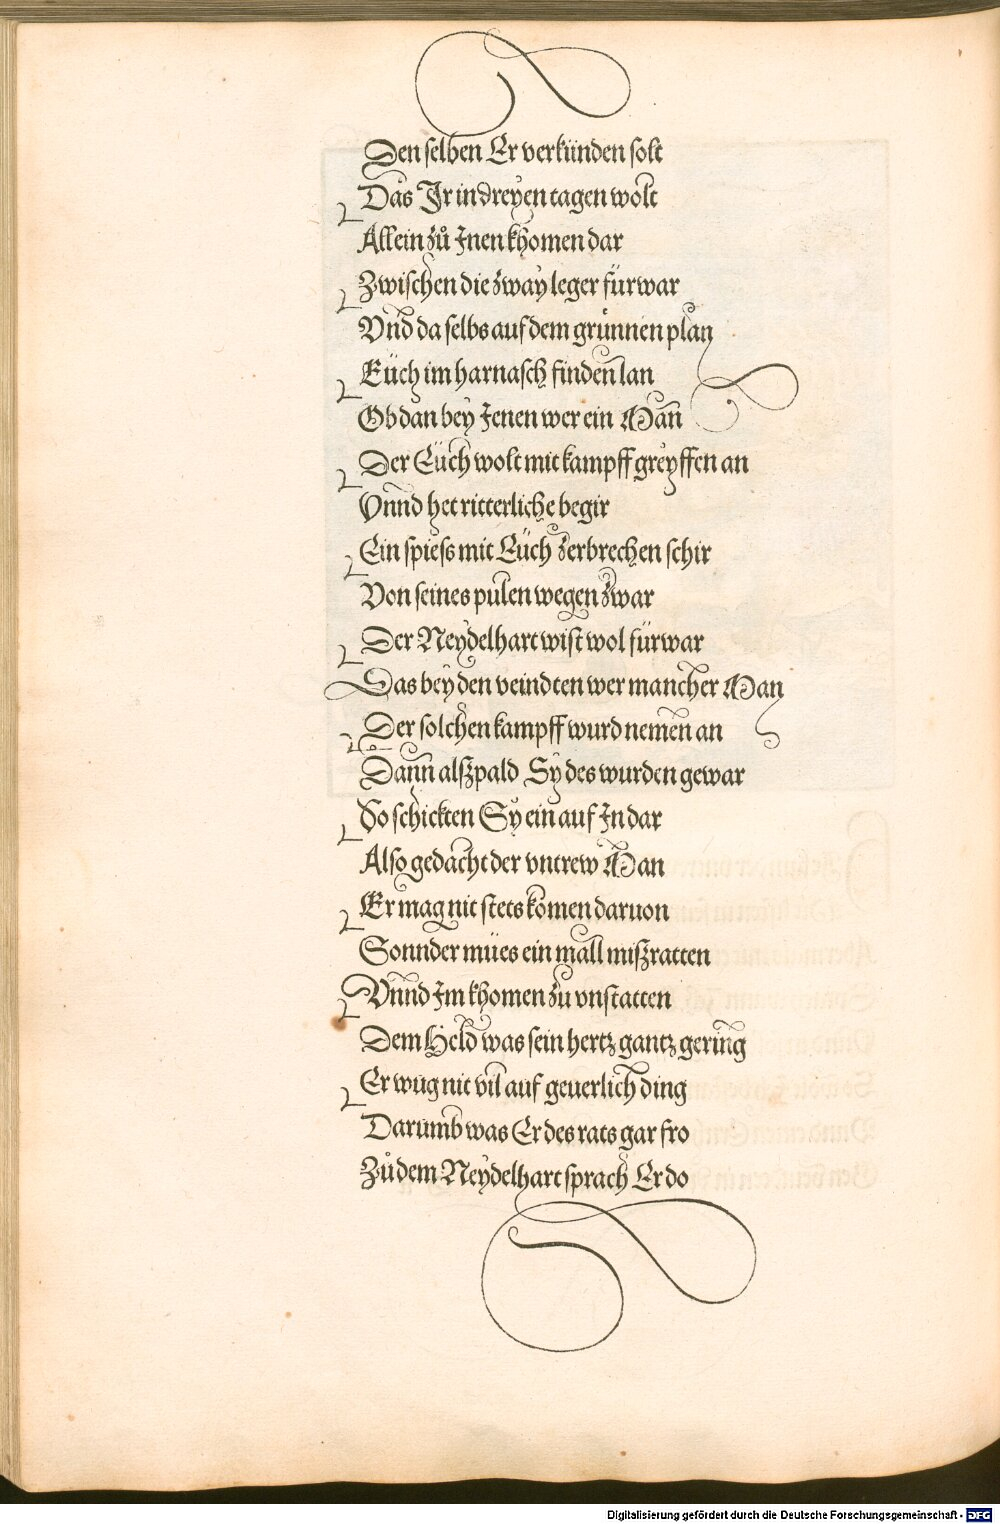 Den selben Er verkünden solt
Das Ir in dreyen tagen wolt
Allein zů Inen khomen dar
Zwischen die zway leger fürwar
Vnd daselbs auf dem grünnen plan
Eüch im harnasch finden lan
Ob dan bey Jenen wer ein Man
Der Eüch wolt mit kampff greyffen an
Vnnd het ritterliche begir
Ein spiess mit Eüch zerbrechen schir
Von seines pulen wegen zwar
Der Neydelhart wist wol fürwar
Das bey den veindten wer mancher Man
Der solchen kampff wurd nemen an
Dann alszpald Sy des wurden gewar
So schickten Sy ein auf In dar
Also gedacht der vntrew Man
Er mag nit stets komen daruon
Sonnder mües ein mall miszratten
Vnnd Im khomen zu vnstatten
Dem Held was sein hertz gantz gering
Er wug nit vil auf geuerlich ding
Darumb was Er des rats gar fro
Zů dem Neydelhart sprach Er do
Digitalisierung gefördert durch die Deutsche Forschungsgemeinschaft - DFG